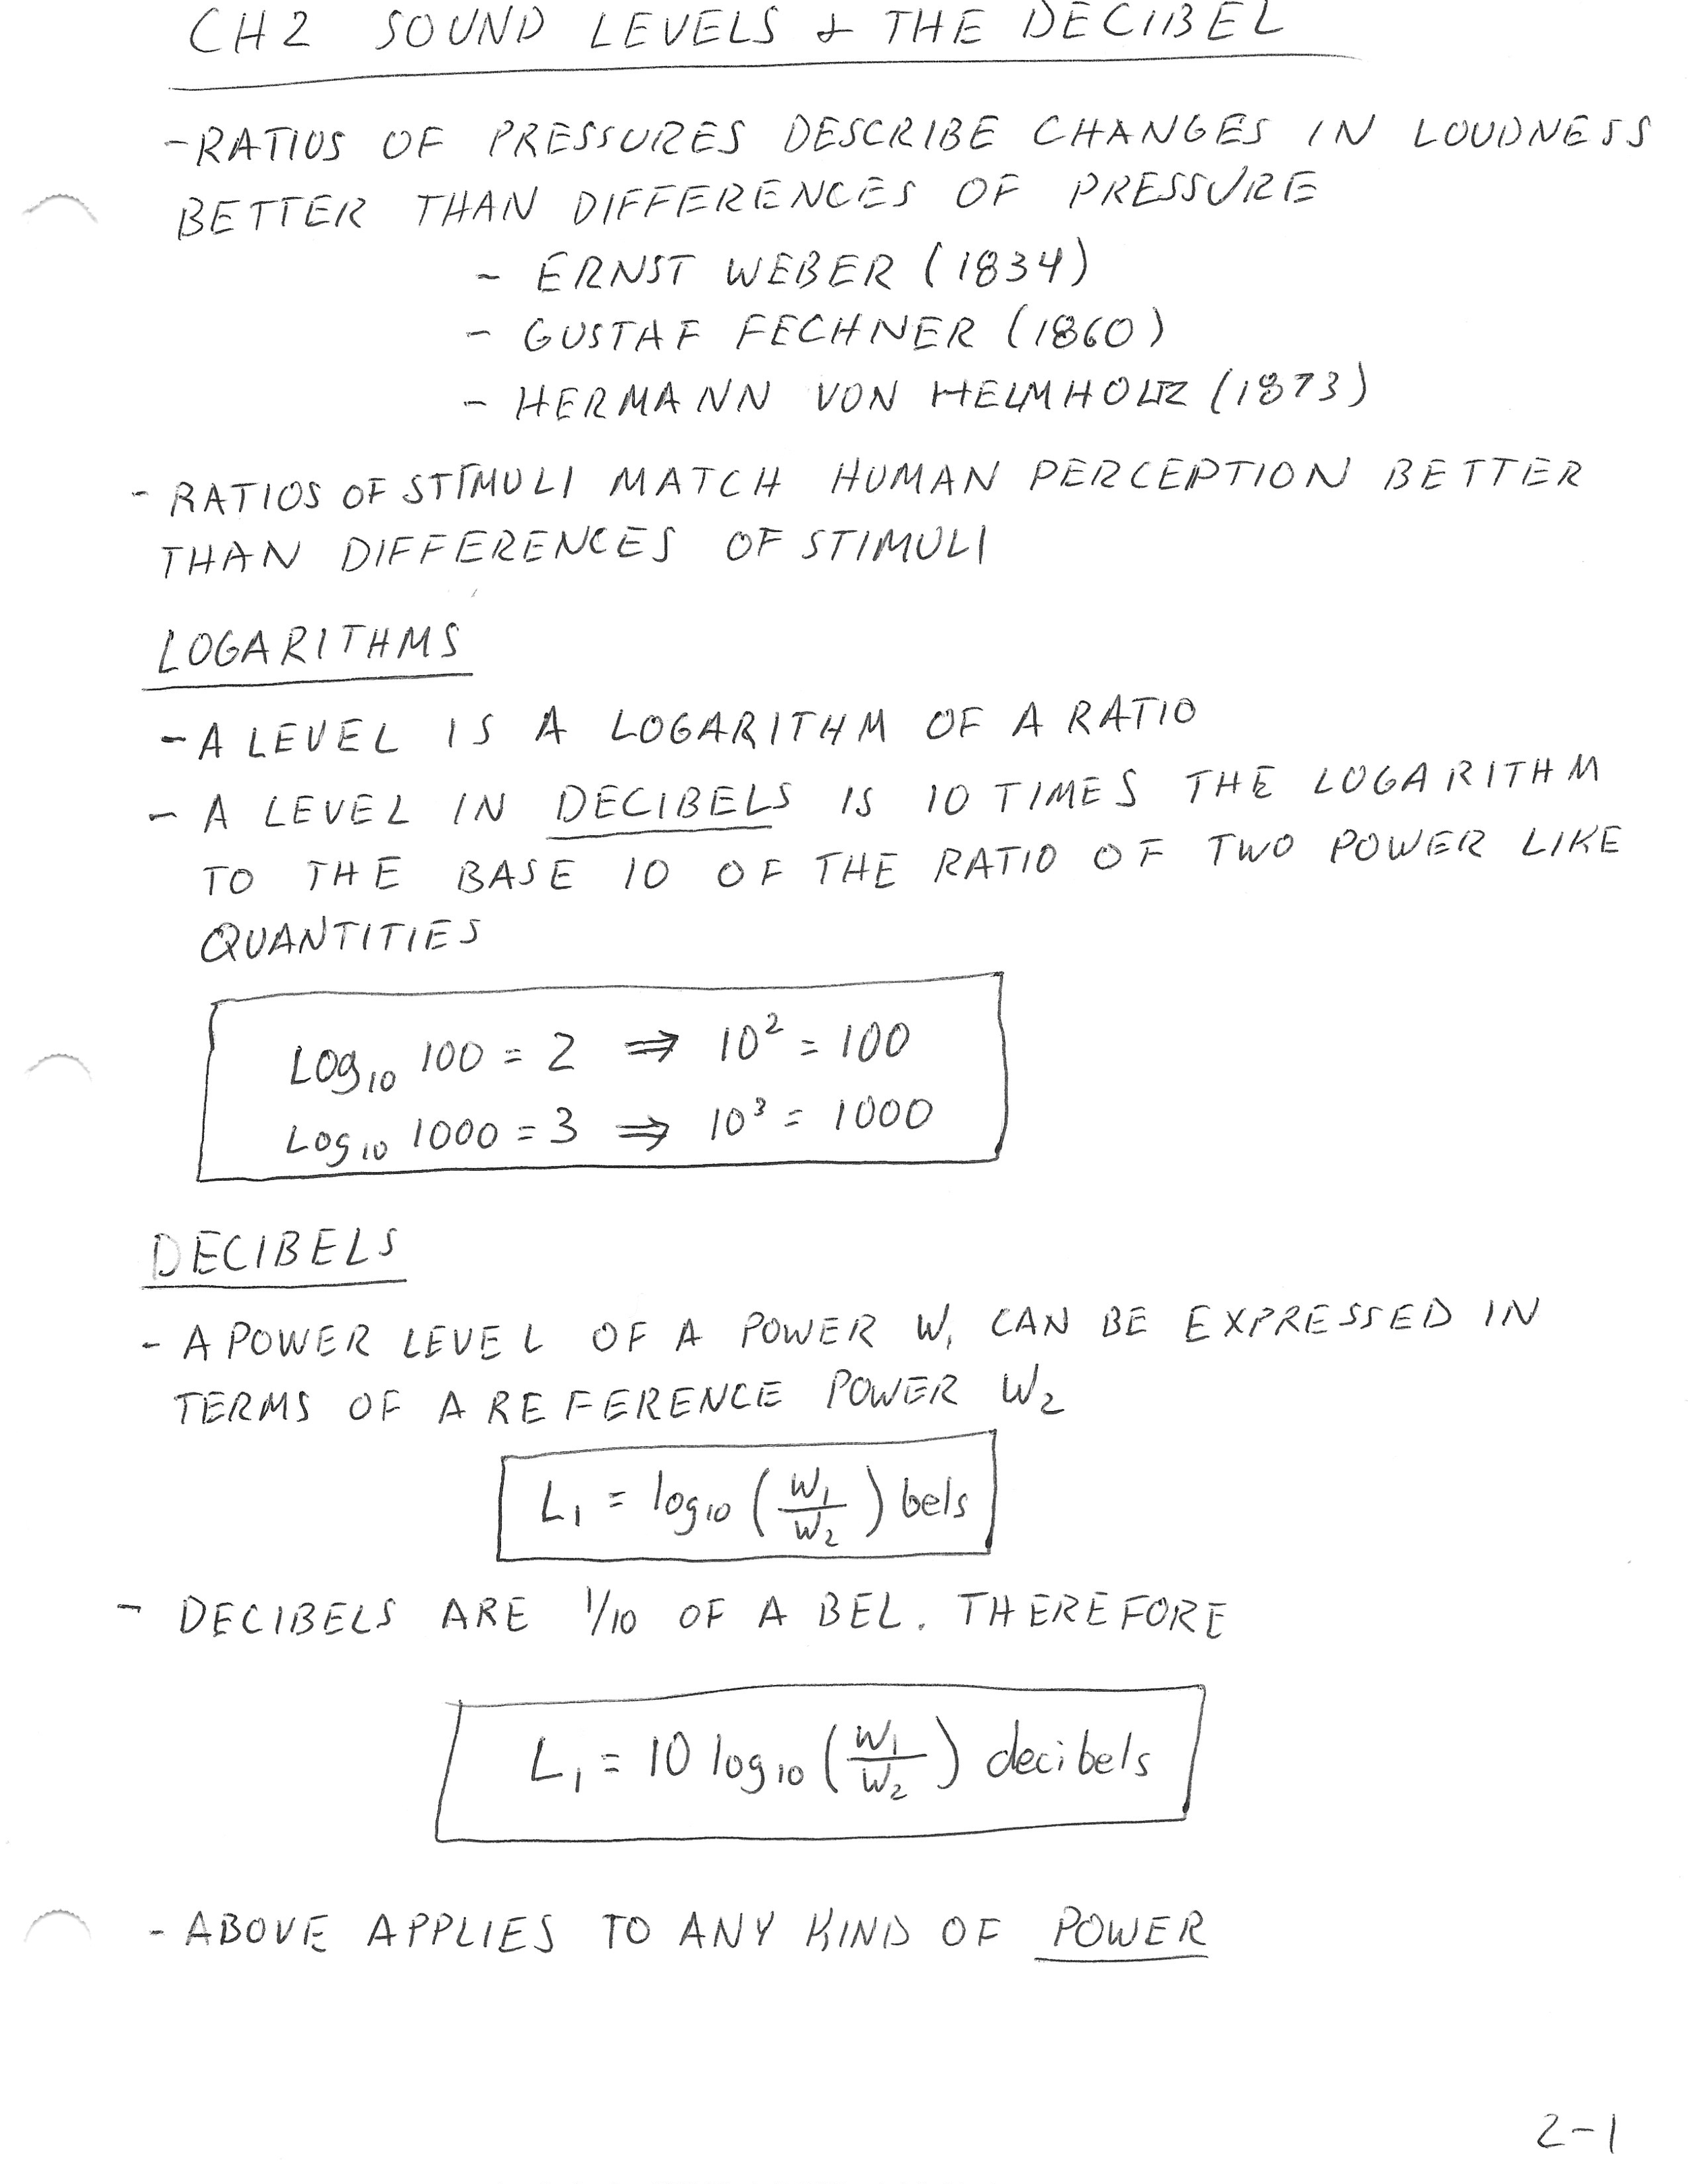 CH2 SOUND LEVELS & THE DECIBEL
- RATIOS OF PRESSURES DESCRIBE CHANGES IN LOUDNESS
BETTER THAN DIFFERENCES OF PRESSURE
- ERNST WEBER (1834)
- GUSTAF FECHNER (1860)
- HERMANN VON HELMHOLTZ (1873)
- RATIOS OF STIMULI MATCH HUMAN PERCEPTION BETTER
THAN DIFFERENCES OF STIMULI
LOGARITHMS
- A LEVEL IS A LOGARITHM OF A RATIO
- A LEVEL IN DECIBELS IS 10 TIMES THE LOGARITHM
TO THE BASE 10 OF THE RATIO OF TWO POWER LIKE
QUANTITIES
Log₁₀ 100 = 2 ⇒ 10² = 100
Log₁₀ 1000 = 3 ⇒ 10³ = 1000
DECIBELS
- A POWER LEVEL OF A POWER W₁ CAN BE EXPRESSED IN
TERMS OF A REFERENCE POWER W₂
L₁ = log₁₀ (W₁/W₂) bels
- DECIBELS ARE 1/10 OF A BEL. THEREFORE
L₁ = 10 log₁₀ (W₁/W₂) decibels
- ABOVE APPLIES TO ANY KIND OF POWER
2-1